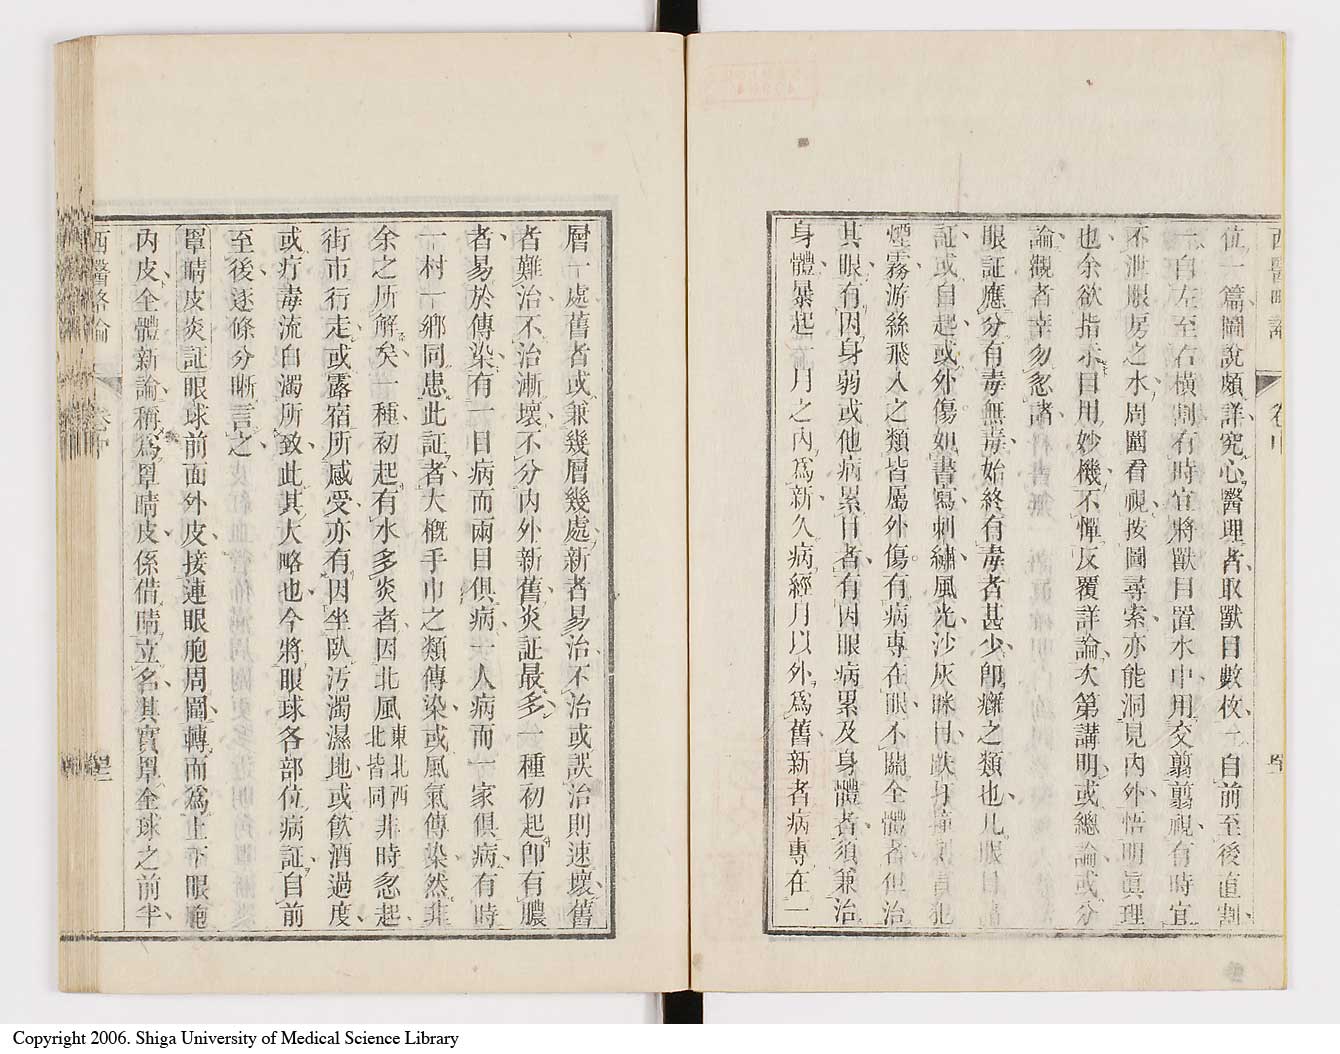 位一篇圖說頗詳究心醫理者取獸目數枚一自前至後直割
一自左至右橫割有時宜將獸目置水中用交翦翦視有時宜
不泄眼房之水周圍看視按圖尋索亦能洞見內外悟明眞理
也余欲指示日用妙機不憚反覆詳論次第講明或總論或分
論觀者幸勿忽諸
眼証應分有毒無毒始終有毒者甚少卽癩之類也凡眼目諸
証或自起或外傷如書寫刺繡風光沙灰眯目
煙霧游絲飛入之類皆屬外傷有病專在眼不關全體者但治
其眼有因身弱或他病累目者有因眼病累及身體者須兼治
身體暴起一月之內爲新久病經月以外爲舊新者病專在一
層一處舊者或兼幾層幾處新者易治不治或誤治則速壞舊
者難治不治漸壞不分內外新舊炎証最多一種初起卽有膿
者易於傳染有一目病而兩目俱病一人病而一家俱病有時
一村一鄉同患此証者大槪手巾之類傳染或風氣傳染然非
余之所解矣一種初起有水多炎者因北風東北西北皆同非時忽起
街市行走或露宿所感受亦有因坐臥汚濁濕地或飮酒過度
或疔毒流白濁所致此其大略也今將眼球各部位病証自前
至後逐條分晰言之
罩睛皮炎証眼球前面外皮接連眼胞周圍轉而爲上下眼胞
內皮全體新論稱爲罩睛皮係借睛立名其實罩全球之前半
西醫略論
卷中
Copyright 2006. Shiga University of Medical Science Library